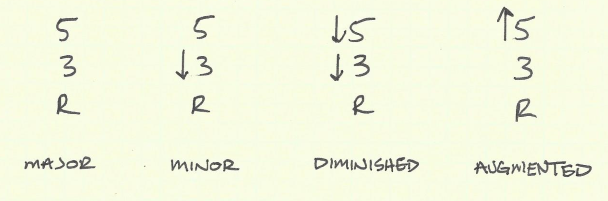 5 5 ↓5 ↑5
3 ↓3 ↓3 3
R R R R
MAJOR MINOR DIMINISHED AUGMENTED